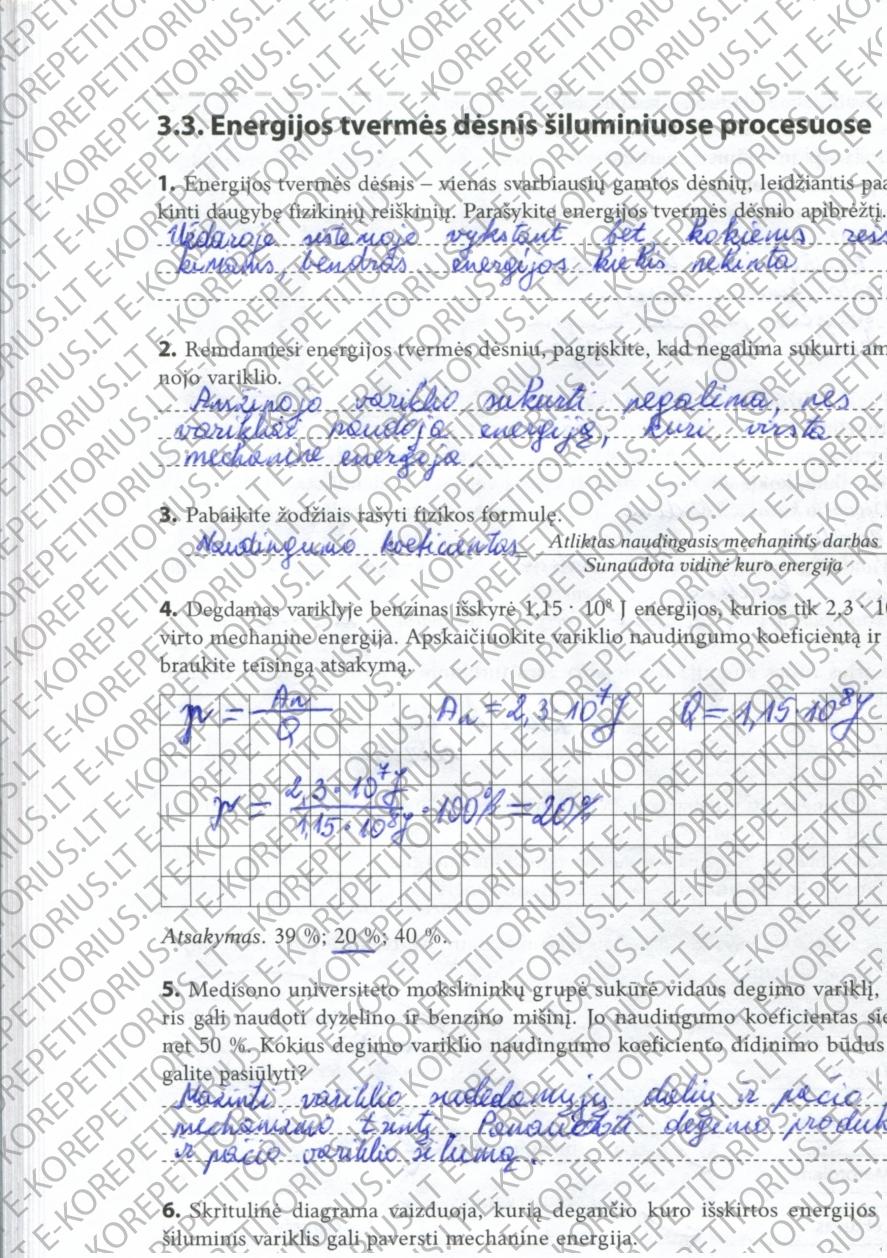 3.3. Energijos tvermės dėsnis šiluminiuose procesuose
1. Energijos tvermės dėsnis – vienas svarbiausių gamtos dėsnių, leidžiantis paa
kinti daugybę fizikinių reiškinių. Parašykite energijos tvermės dėsnio apibrėžtį.
Uždaroje sistemoje vykstant bet kokiems
kimams, bendras energijos kiekis nekinta
2. Remdamiesi energijos tvermės dėsniu, pagrįskite, kad negalima sukurti am
nojo variklio.
Amžinojo variklio sukurti negalima, nes
variklis naudoja energiją, kuri virsta
mechanine energija.
3. Pabaikite žodžiais rašyti fizikos formulę.
Naudingumo koeficientas = Atliktas naudingasis mechaninis darbas
Sunaudota vidinė kuro energija
4. Degdamas variklyje benzinas išskyrė 1,15 · 10⁸ J energijos, kurios tik 2,3 · 1
virto mechanine energija. Apskaičiuokite variklio naudingumo koeficientą ir
braukite teisingą atsakymą.
η = Aₙ / Q Aₙ = 2,3 · 10⁷ J Q = 1,15 · 10⁸ J
η = 2,3 · 10⁷ J / 1,15 · 10⁸ J · 100% = 20%
Atsakymas. 39 %; 20 %; 40 %.
5. Medisono universiteto mokslininkų grupė sukūrė vidaus degimo variklį,
ris gali naudoti dyzelino ir benzino mišinį. Jo naudingumo koeficientas sie
net 50 %. Kokius degimo variklio naudingumo koeficiento didinimo būdus
galite pasiūlyti?
Mažinti variklio sudedamųjų dalių ir pačio
mechanizmo trintį. Panaudoti degimo produk
ir pačio variklio šilumą.
6. Skritulinė diagrama vaizduoja, kurią degančio kuro išskirtos energijos
šiluminis variklis gali paversti mechanine energija.
E-KOREPETITORIUS.LT